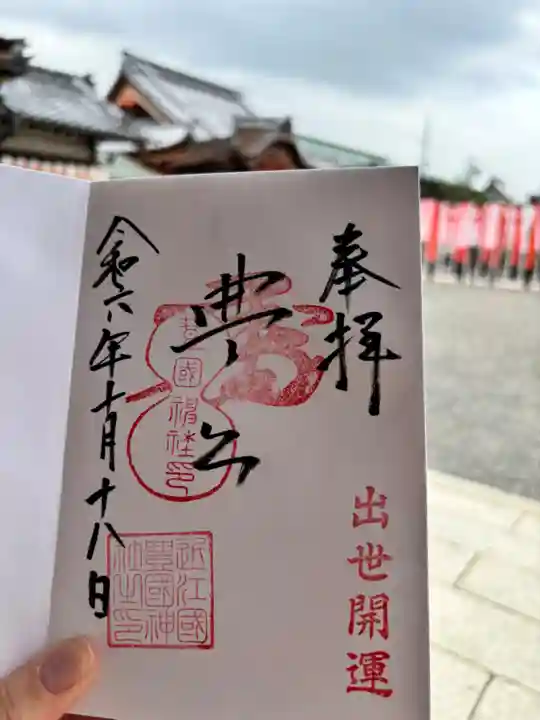 奉拝
出世開運
豊公
豊國神社印
近江國
豊國神
社之印
令和六年十月十八日